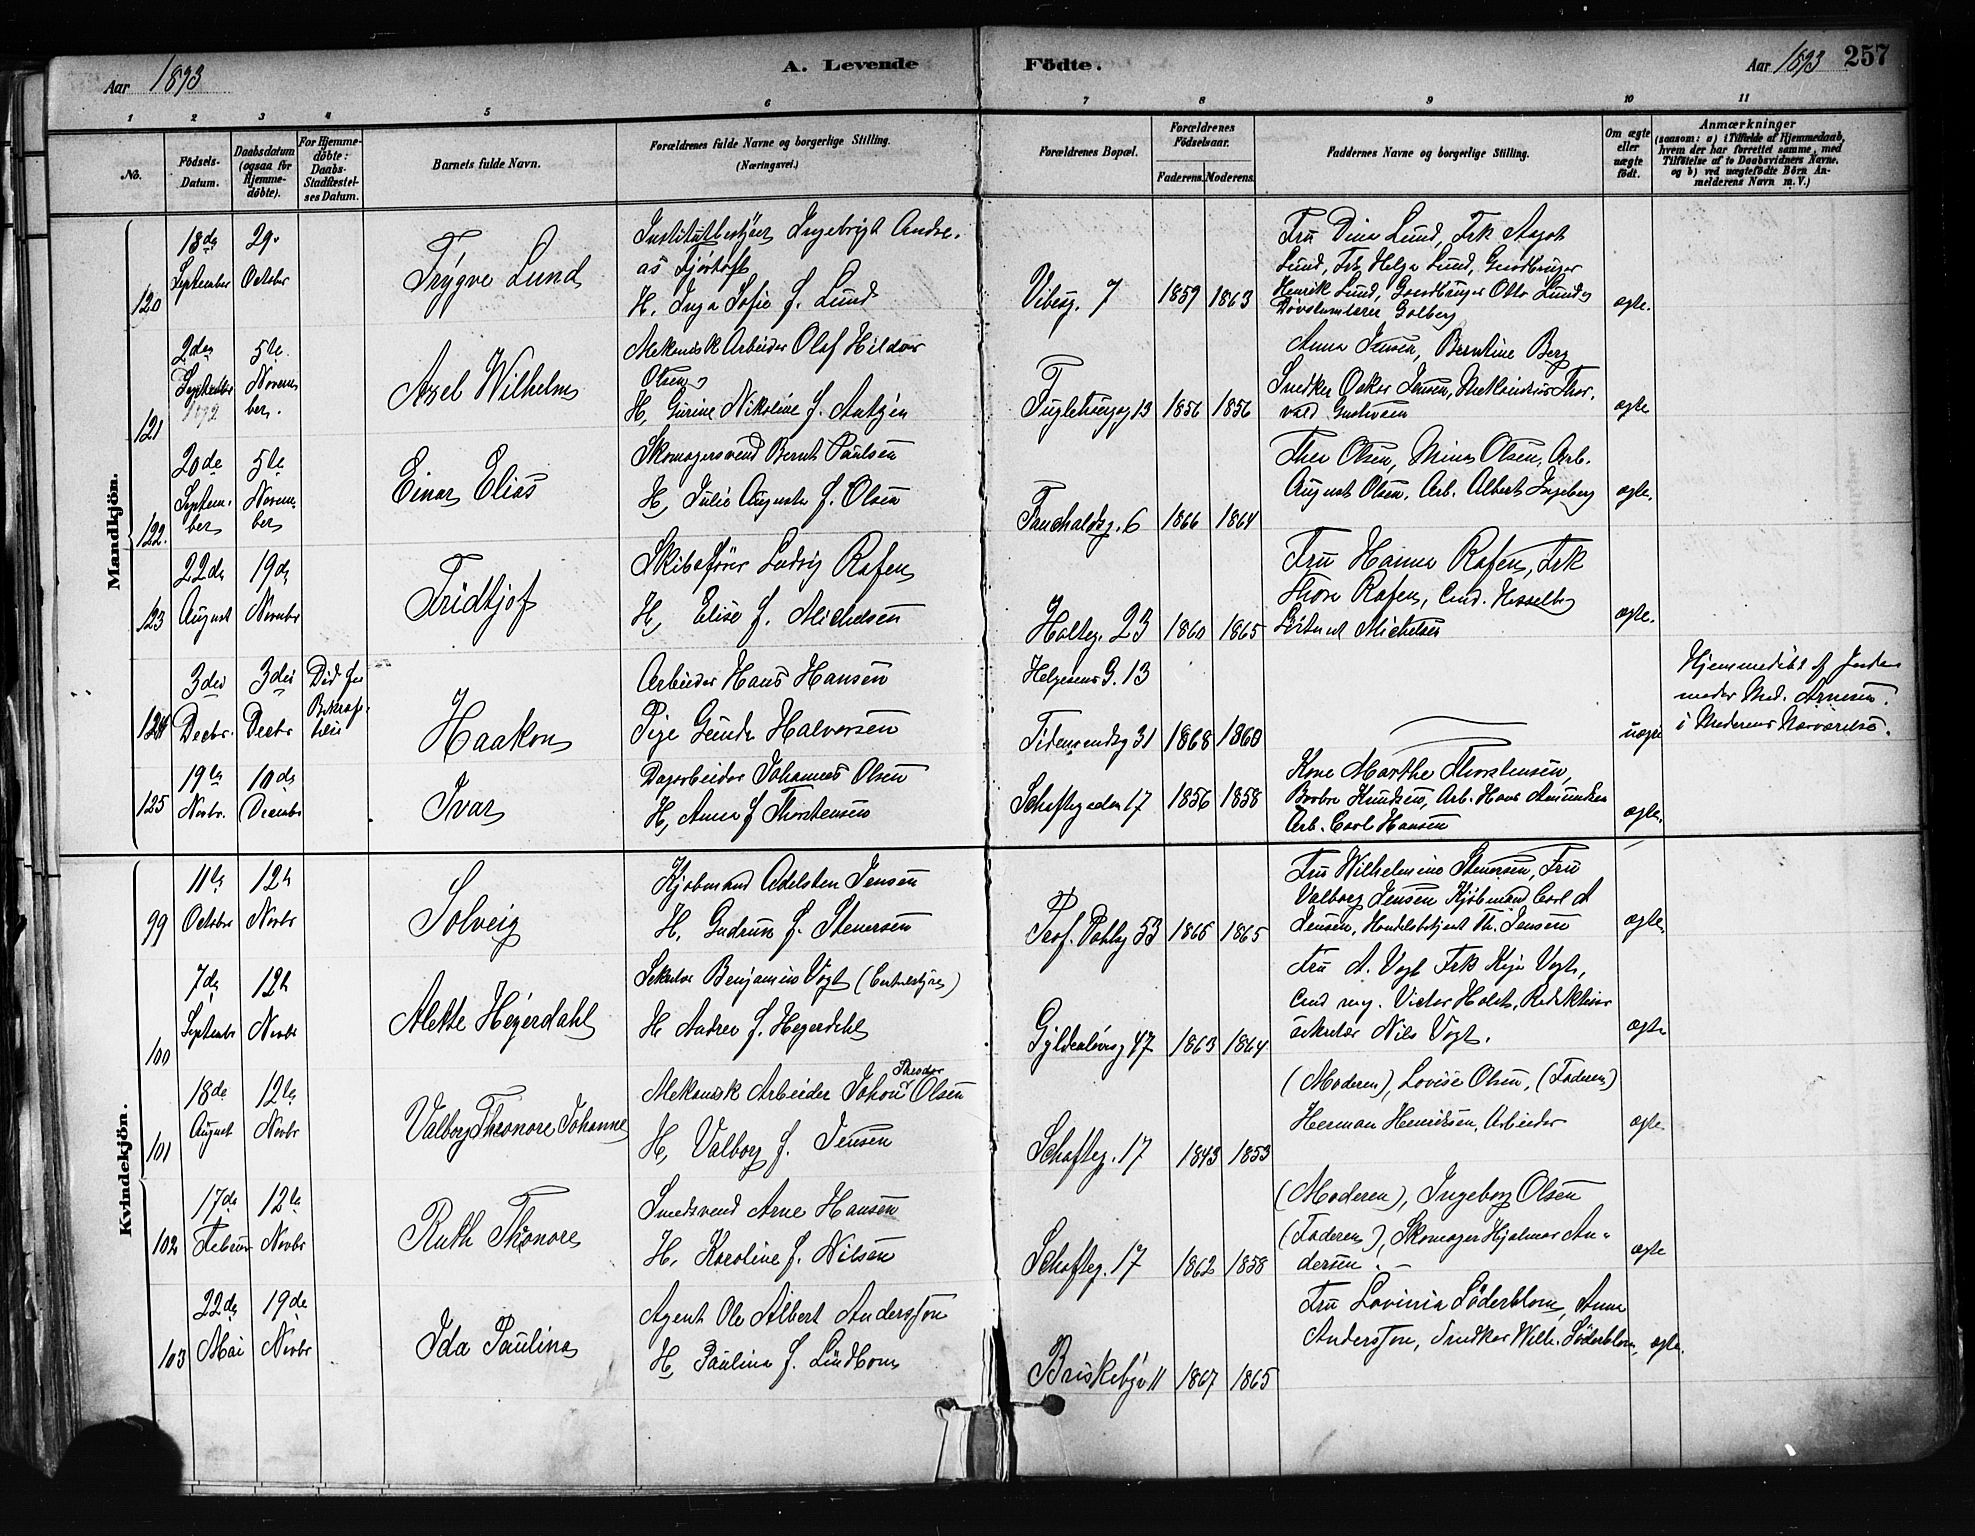 Aar 1893
A. Levende Födte.
Aar 1893 257
1 2 3 4 5 6 7 8 9 10 11
No.
Födsels-Datum.
Daabsdatum (ogsaa for Hjemme-döbte).
For Hjemme-döbte: Daabs-Stadfæstel-ses Datum.
Barnets fulde Navn.
Forældrenes fulde Navne og borgerlige Stilling.
(Næringsvei.)
Forældrenes Bopæl.
Forældrenes Födselsaar.
Faderens. Moderens.
Faddernes Navne og borgerlige Stilling.
Om ægte eller uægte födt.
Anmærkninger
(saasom: a) i Tilfælde af Hjemmedaab,
hvem der har forrettet samme, med
Tilföielse af to Daabsvidners Navne,
og b) ved uægtefödte Börn An-
melderens Navn m. V.)
Mandkjön.
120
18de September
29. October
Trygve Lund
Institutbestyrer Ingebrigt Andre-
as Fjörtoft
H. Inga Sofie f. Lund
Vibesg. 7
1859 1863
Fru Dina Lund, Frk Aagot
Lund, Frk Helga Lund, Gaardbruger
Henrik Lund, Gaardbruger Otto Lund,
Dövstumlærer Golberg
ægte.
121
2den September 1892
5te November.
Axel Wilhelm
Mekanisk Arbeider Olaf Hildor
Olsen
H, Gurine Nikoline f.
13
1856 1856
Anna Jensen, Berntine Berg
Snedker Oskar Jensen, Thor-
vald
ægte
122.
20de September
5te November
Einar Elias
Skomagersvend Bernt Paulsen
H, Julie Augusta f. Olsen
6
1866 1864
Thea Olsen, Mina Olsen, Arb.
August Olsen. Arb. Albert Ingeberg
ægte.
123
22de August
19de November
Fridtjof
Skibsförer Ludvig Rafen
H, Elise f. Michelsen
Holteg. 23
1860 1865
Fru Hanna Rafen, Frk
Thora Rafen, Cand. Hesselberg
Michelsen
ægte.
124
3die Decbr.
3die Decbr
Död för
Bekræf-
telse
Haakon
Arbeider Hans Hansen
Pige Gunda Halvorsen
Helgesens G. 13
Tidemandsg 31
1868 1860
uægte
Hjemmedöbt af Jorde-
moder Mad. Arnesen.
i Moderens Nærværelse.
125
19de Novbr.
10de Decembr
Ivar
Dagarbeider Johannes Olsen
H, Anna f Thorstensen
Schaftegaden 17
1856 1858
Kone Marthe Thorstensen,
Barbro Knudsen, Arb. Hans Amundsen
Arb. Carl Hansen
ægte.
Kvindekjön.
99
11te October
12te Novbr
Solveig
Kjöbmand Adelsten Jensen
H, Gudrun f. Stenersen
Prof. Dahlsg 53
1865 1865
Fru Wilhelmine Stenersen, Fru
Valborg Jensen Kjöbmand Carl A
Jensen, Handelsbetjent Th. Jensen
ægte.
100
7de Septembr
12te Novbr
Alette Heyerdahl
Sekretær Benjamin Vogt
H Andrea f. Heyerdahl
Gyldenlövesg 47
1863 1864
Fru A. Vogt Frk Kaja Vogt,
Cand Victor Holst, Redaktions
sekretær Nils Vogt.
ægte
101
18de August
12te Novbr
Valborg Theonore Johanne
Mekanisk Arbeider Johan Theodor Olsen
H, Valborg f. Jensen
Schafteg. 17
1843 1853
(Moderen), Lovise Olsen, (Faderen)
Herman Henriksen, Arbeider
ægte
102
17de Februar
12te Novbr
Ruth Theonore
Smedsvend Arne Hansen
H, Karoline f. Nilsen
Schafteg. 17
1862 1858
(Moderen), Ingeborg Olsen
(Faderen), Skomager Hjalmar An-
dersen.
ægte
103
22de Mai
19de Novbr
Ida Paulina
Agent Ole Albert Andersson
H, Paulina f. Lindbom
Briskebyv 11
1867 1865
Fru Lovinia Söderblom, Anna
Andersson, Snedker Wilh. Söderblom,
ægte.